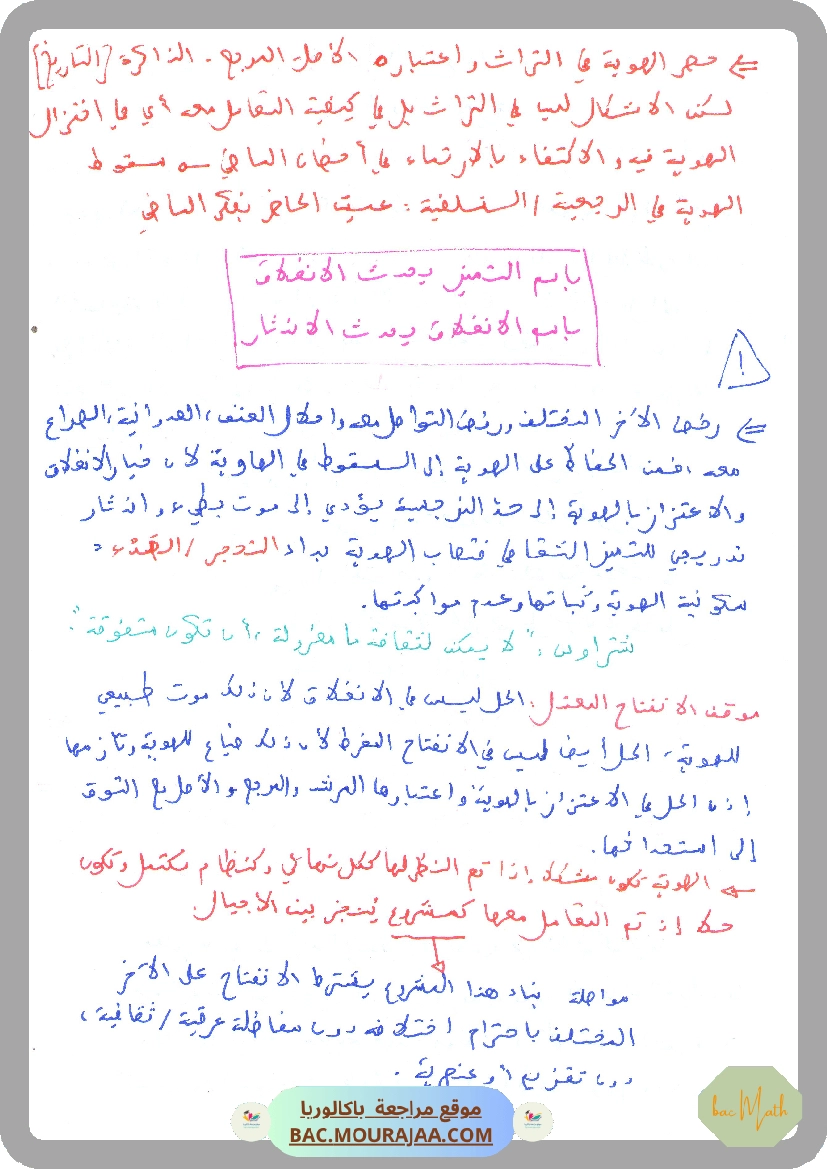 ⇐ حصر الهوية في التراث واعتباره الأصل المرجع - الذاكرة [التاريخ]
لكن الاشكال ليس في التراث بل في كيفية التعامل معه أي في اختزال
الهوية فيه والاكتفاء بالارتماء في أحضان الماضي → سقوط
الهوية في الرجعية / السلفية : عيش الحاضر بفكر الماضي
باسم التميز يحدث الانغلاق
باسم الانغلاق يحدث الاندثار
!
⇐ رفض الآخر المختلف ورفض التواصل معه واحلال العنف، العدوانية، الصراع
معه، فمن الحفاظ على الهوية إلى السقوط في الهاوية لأن خيار الانغلاق
والاعتزاز بالهوية إلى حد النرجسية يؤدي إلى موت بطيء واندثار
تدريجي للتميز الثقافي فتصاب الهوية بداء التحجر / الصَدَء =
سكونية الهوية وثباتها وعدم مواكبتها.
شتراوس : "لا يمكن لثقافة ما معزولة، أن تكون متفوقة".
موقف الانفتاح المعتدل : الحل ليس في الانغلاق لأن ذلك موت طبيعي
للهوية، الحل أيضا ليس في الانفتاح المفرط لأن ذلك ضياع للهوية وتأزمها
إذن الحل في الاعتزاز بالهوية واعتبارها المرشد والمرجع والأصل مع التوق
إلى استعدائها.
← الهوية تكون مشكلا إذا تم النظر لها ككل نهائي وكنظام مكتمل وتكون
حلا إن تم التعامل معها كمشروع يُنجز بين الأجيال.
مواصلة بناء هذا المشروع يشترط الانفتاح على الآخر
المختلف باحترام اختلافه دون مفاضلة عرقية / ثقافية،
دون تقزيم أو عنصرية.
موقع مراجعة باكالوريا
BAC.MOURAJAA.COM
bac Math